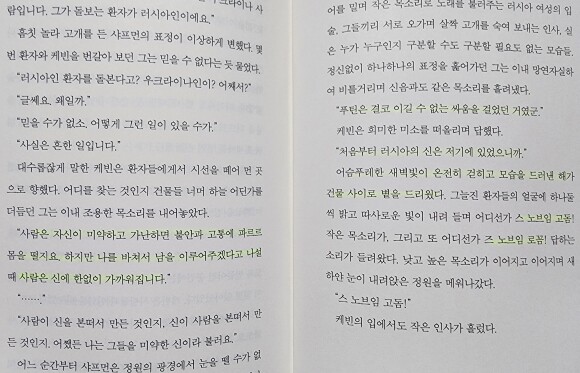 람입니다. 그가 돌보는 환자가 러시아인이에요."
흠칫 놀라 고개를 든 샤프먼의 표정이 이상하게 변했다. 몇
번 환자와 케빈을 번갈아 보던 그는 믿을 수 없다는 듯 물었다.
"러시아인 환자를 돌본다고? 우크라이나인이? 어째서?"
"글쎄요. 왜일까."
"믿을 수가 없소. 어떻게 그런 일이 있을 수가."
"사실은 흔한 일입니다."
대수롭잖게 말한 케빈은 환자들에게서 시선을 떼어 먼 곳
으로 향했다. 어디를 찾는 것인지 건물들 너머 하늘 어딘가를
더듬던 그는 이내 조용한 목소리를 내어놓았다.
"사람은 자신이 미약하고 가난하면 불안과 고통에 파르르
몸을 떨지요. 하지만 나를 바쳐서 남을 이루어주겠다고 나설
때 사람은 신에 한없이 가까워집니다."
"……."
"사람이 신을 본떠서 만든 것인지, 신이 사람을 본떠서 만
든 것인지. 어쨌든 나는 그들을 미약한 신이라 불러요."
어느 순간부터 샤프먼은 정원의 광경에서 눈을 뗄 수가 없
어를 밀며 작은 목소리로 노래를 불러주는 러시아 여성의 입
술. 그들끼리 서로 오가며 살짝 고개를 숙여 보내는 인사. 실
은 누가 누구인지 구분할 수도 구분할 필요도 없는 모습들.
정신없이 하나하나의 표정을 훑어가던 그는 이내 망연자실하
여 비틀거리며 신음과도 같은 목소리를 흘려냈다.
"푸틴은 결코 이길 수 없는 싸움을 걸었던 거였군."
케빈은 희미한 미소를 떠올리며 답했다.
"처음부터 러시아의 신은 저기에 있었으니까."
어슴푸레한 새벽빛이 온전히 걷히고 모습을 드러낸 해가
건물 사이로 볕을 드리웠다. 그늘진 환자들의 얼굴에 하나둘
씩 밝고 따사로운 빛이 내려 들며 어디선가 스 노브임 고돔!
작은 목소리가, 그리고 또 어디선가 즈 노브임 로꼼! 답하는
소리가 들려왔다. 낮고 높은 목소리가 이어지고 이어지며 새
하얀 눈이 내려앉은 정원을 메워나갔다.
"스 노브임 고돔!"
케빈의 입에서도 작은 인사가 흘렀다.